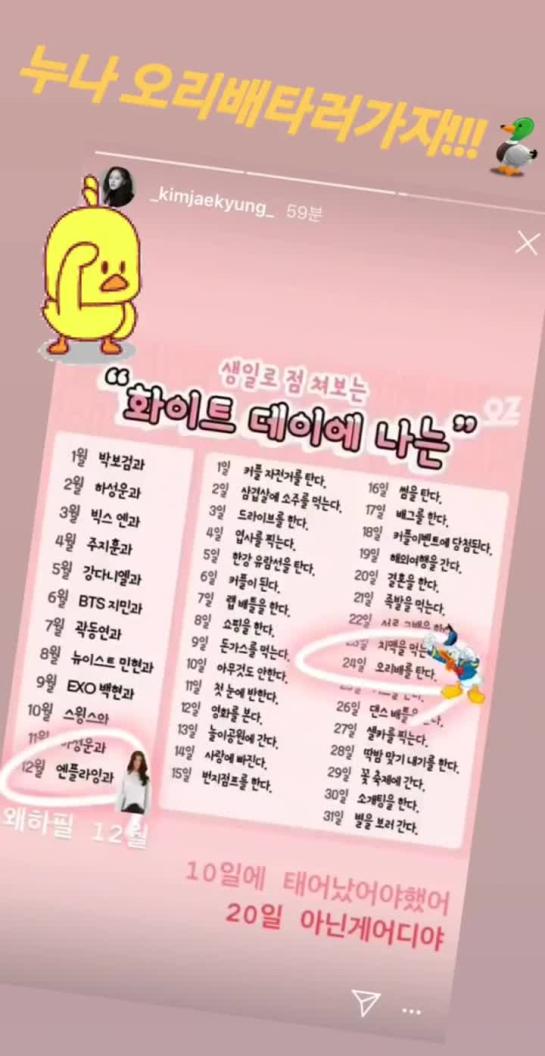 누나 오리배타러가자!!!
_kimjaekyung_ 59분
생일로 점 쳐보는
“화이트 데이에 나는”
1월 박보검과
2월 하성운과
3월 빅스 엔과
4월 주지훈과
5월 강다니엘과
6월 BTS 지민과
7월 곽동연과
8월 뉴이스트 민현과
9월 EXO 백현과
10월 스윙스와
11월
12월 엔플라잉과
1일 커플 자전거를 탄다.
2일 삼겹살에 소주를 먹는다.
3일 드라이브를 한다.
4일 엽사를 찍는다.
5일 한강 유람선을 탄다.
6일 커플이 된다.
7일 랩 배틀을 한다.
8일 쇼핑을 한다.
9일 돈가스를 먹는다.
10일 아무것도 안한다.
11일 첫 눈에 반한다.
12일 영화를 본다.
13일 놀이공원에 간다.
14일 사랑에 빠진다.
15일 번지점프를 한다.
16일 썸을 탄다.
17일 배그를 한다.
18일 커플이벤트에 당첨된다.
19일 해외여행을 간다.
20일 결혼을 한다.
21일 족발을 먹는다.
22일
23일 치맥을
24일 오리배를 탄다.
25일
26일 댄스 배틀
27일 셀카를 찍는다.
28일 딱밤 맞기 내기를 한다.
29일 꽃 축제에 간다.
30일 소개팅을 한다.
31일 별을 보러 간다.
왜하필 12월
10일에 태어났어야했어
20일 아닌게어디야